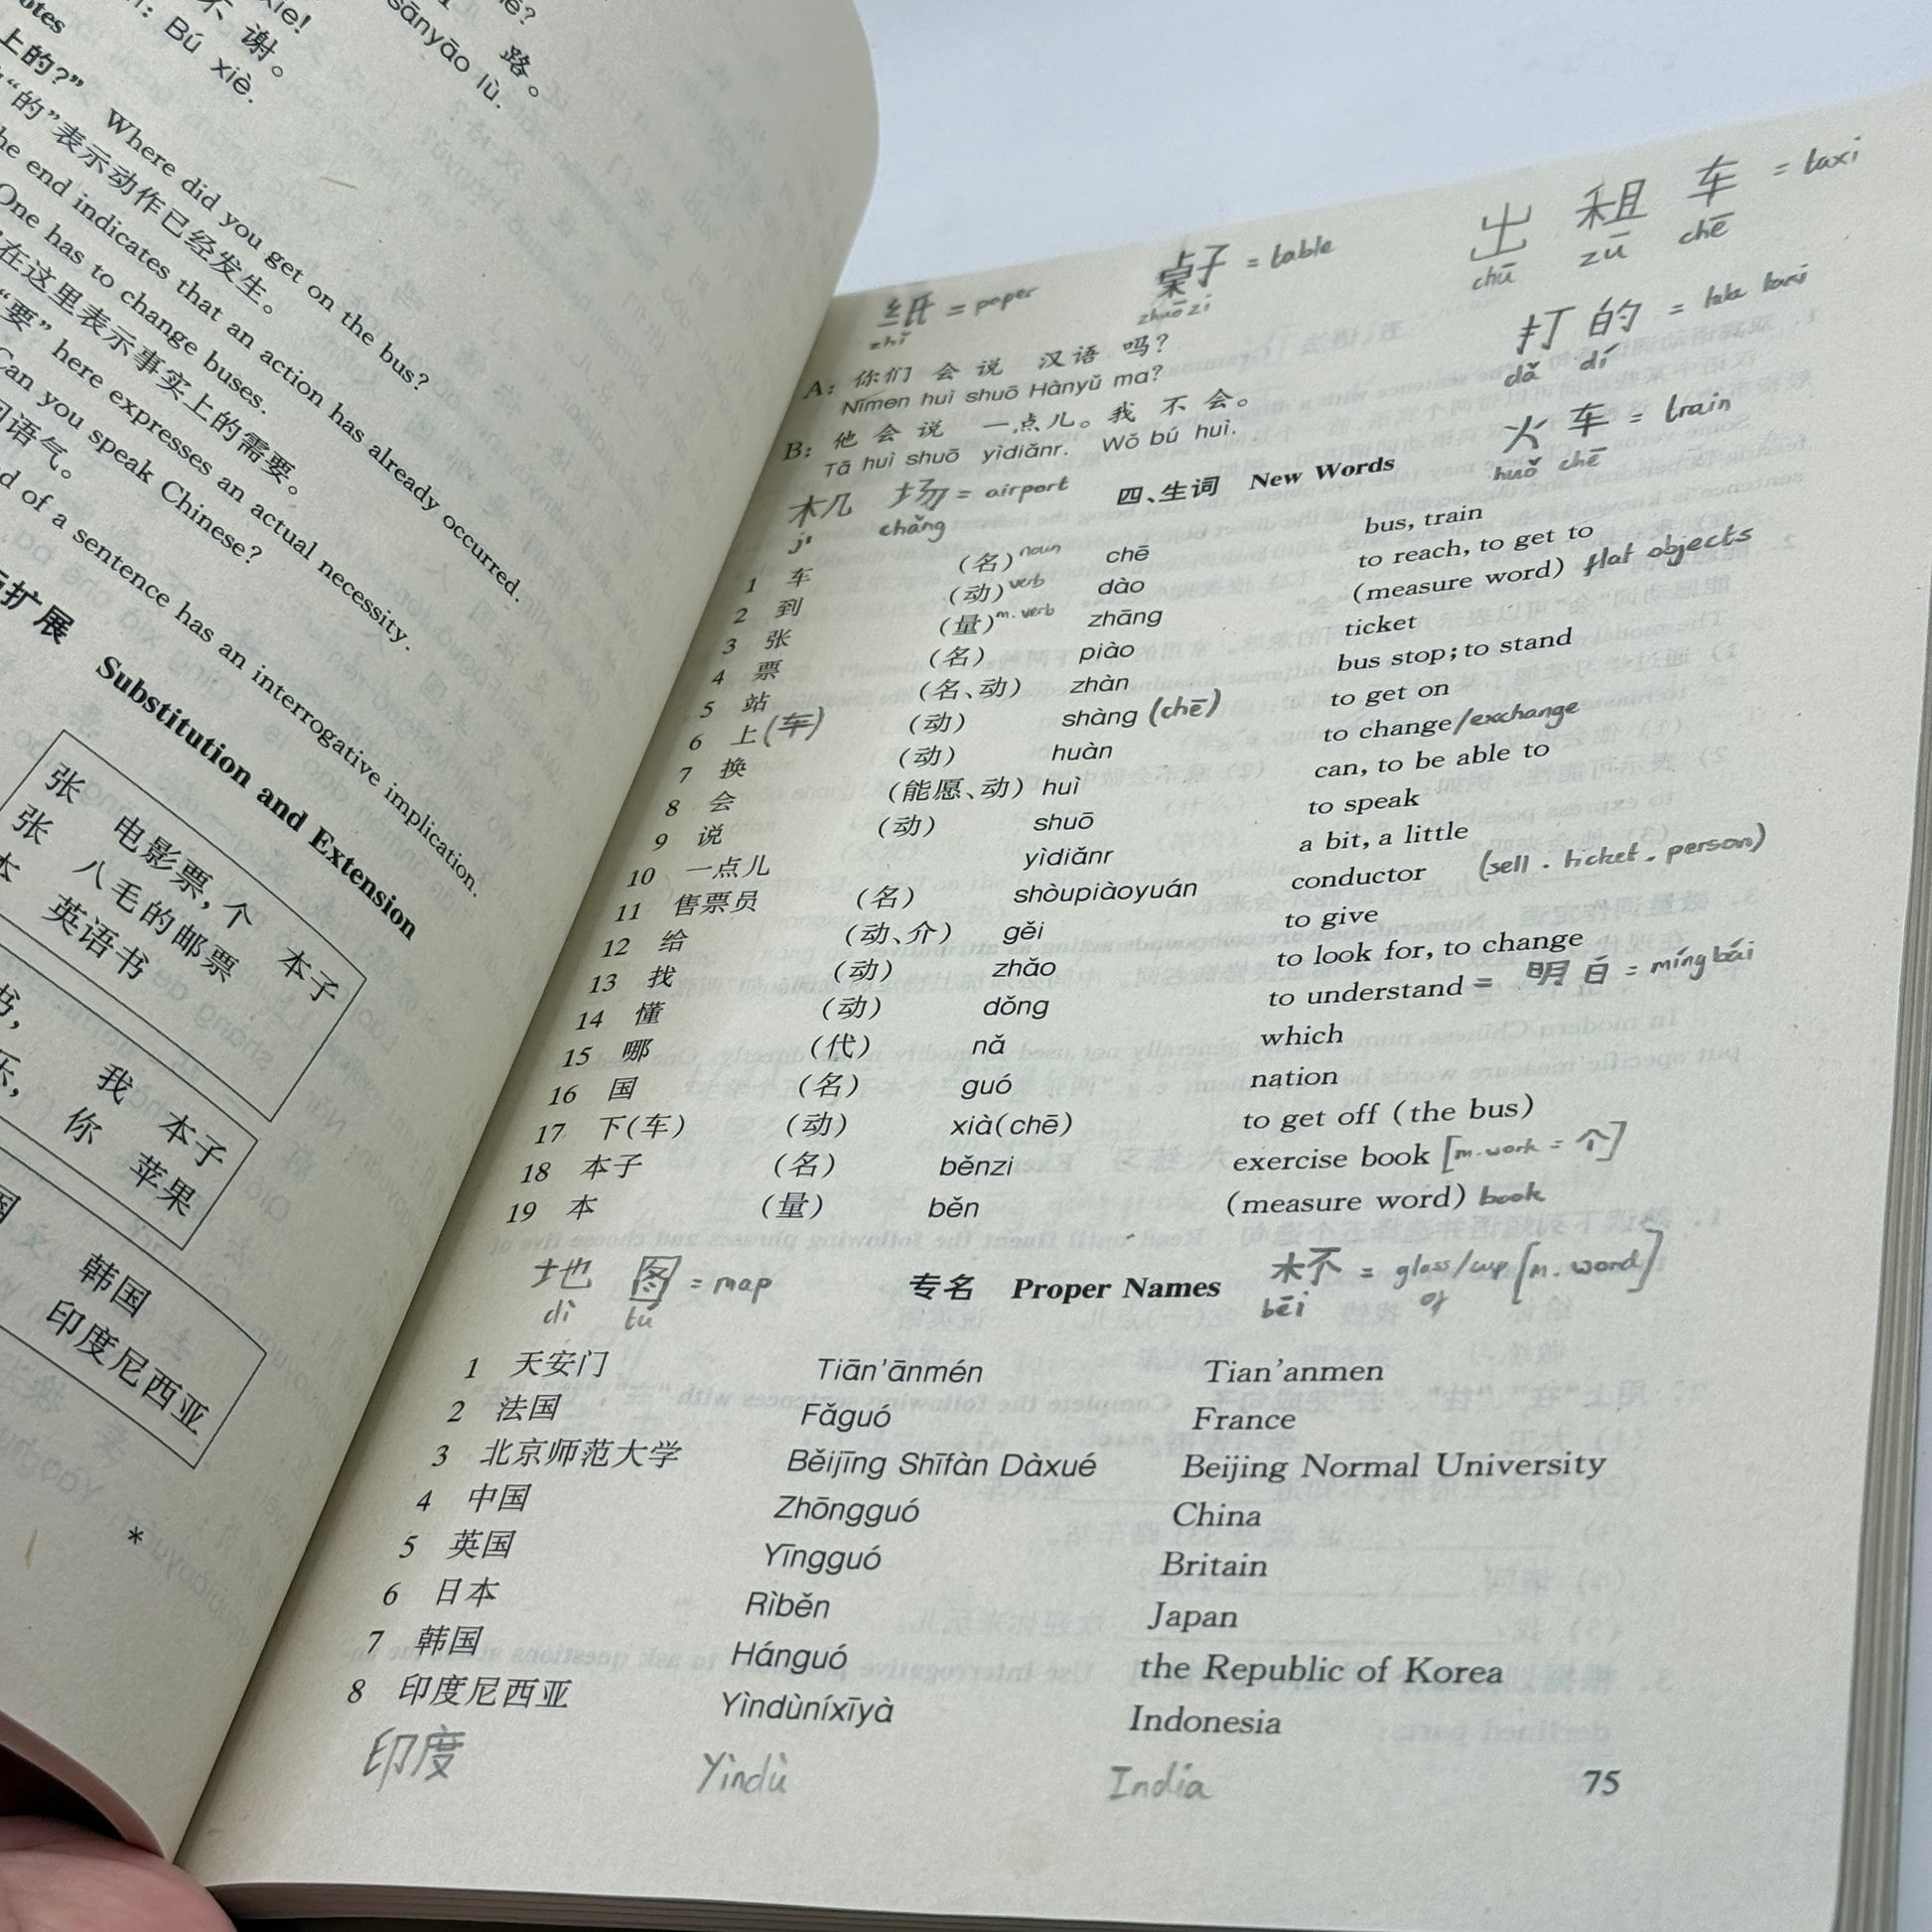 otes
谢。
Bú xiè.
路。
sānyāo lù.
上的?” Where did you get on the bus?
“的”表示动作已经发生。
he end indicates that an action has already occurred.
One has to change buses.
在这里表示事实上的需要。
“要” here expresses an actual necessity.
Can you speak Chinese?
问语气。
d of a sentence has an interrogative implication.
扩展 Substitution and Extension
张 电影票, 个 本子
张 八毛的邮票
本 英语书
书, 我 本子
乐, 你 苹果
国 韩国
印度尼西亚
*
纸 = paper
zhǐ
桌子 = table
zhuō zi
出 租 车 = taxi
chū zū chē
打 的 = take taxi
dǎ dí
火 车 = train
huǒ chē
A: 你们 会 说 汉语 吗?
Nǐmen huì shuō Hànyǔ ma?
B: 他 会 说 一点儿。我 不 会。
Tā huì shuō yìdiǎnr. Wǒ bú huì.
机 场 = airport
jī chǎng
四、生词 New Words
1 车 (名) noun chē bus, train
2 到 (动) verb dào to reach, to get to
3 张 (量) m. verb zhāng (measure word) flat objects
4 票 (名) piào ticket
5 站 (名、动) zhàn bus stop; to stand
6 上(车) (动) shàng (chē) to get on
7 换 (动) huàn to change/exchange
8 会 (能愿、动) huì can, to be able to
9 说 (动) shuō to speak
10 一点儿 yìdiǎnr a bit, a little
11 售票员 (名) shòupiàoyuán conductor (sell . ticket . person)
12 给 (动、介) gěi to give
13 找 (动) zhǎo to look for, to change
14 懂 (动) dǒng to understand = 明白 = míng bái
15 哪 (代) nǎ which
16 国 (名) guó nation
17 下(车) (动) xià(chē) to get off (the bus)
18 本子 (名) běnzi exercise book [m. work = 个]
19 本 (量) běn (measure word) book
地 图 = map
dì tú
专名 Proper Names
杯 = glass/cup of [m. word]
bēi
1 天安门 Tiān’ānmén Tian’anmen
2 法国 Fǎguó France
3 北京师范大学 Běijīng Shīfàn Dàxué Beijing Normal University
4 中国 Zhōngguó China
5 英国 Yīngguó Britain
6 日本 Rìběn Japan
7 韩国 Hánguó the Republic of Korea
8 印度尼西亚 Yìndùníxīyà Indonesia
印度 Yìndù India
75